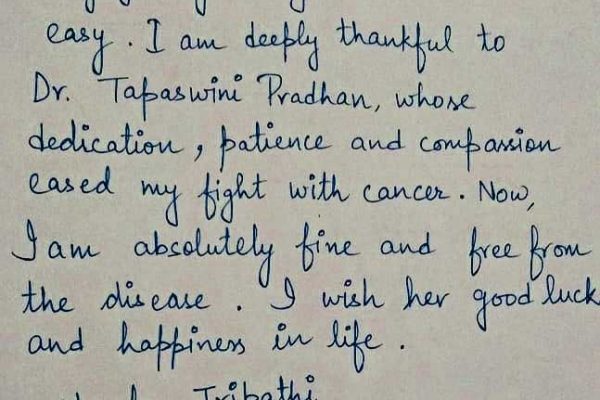 easy. I am deeply thankful to
Dr. Tapaswini Pradhan, whose
dedication, patience and compassion
eased my fight with cancer. Now,
I am absolutely fine and free from
the disease. I wish her good luck
and happiness in life.
Tripathi